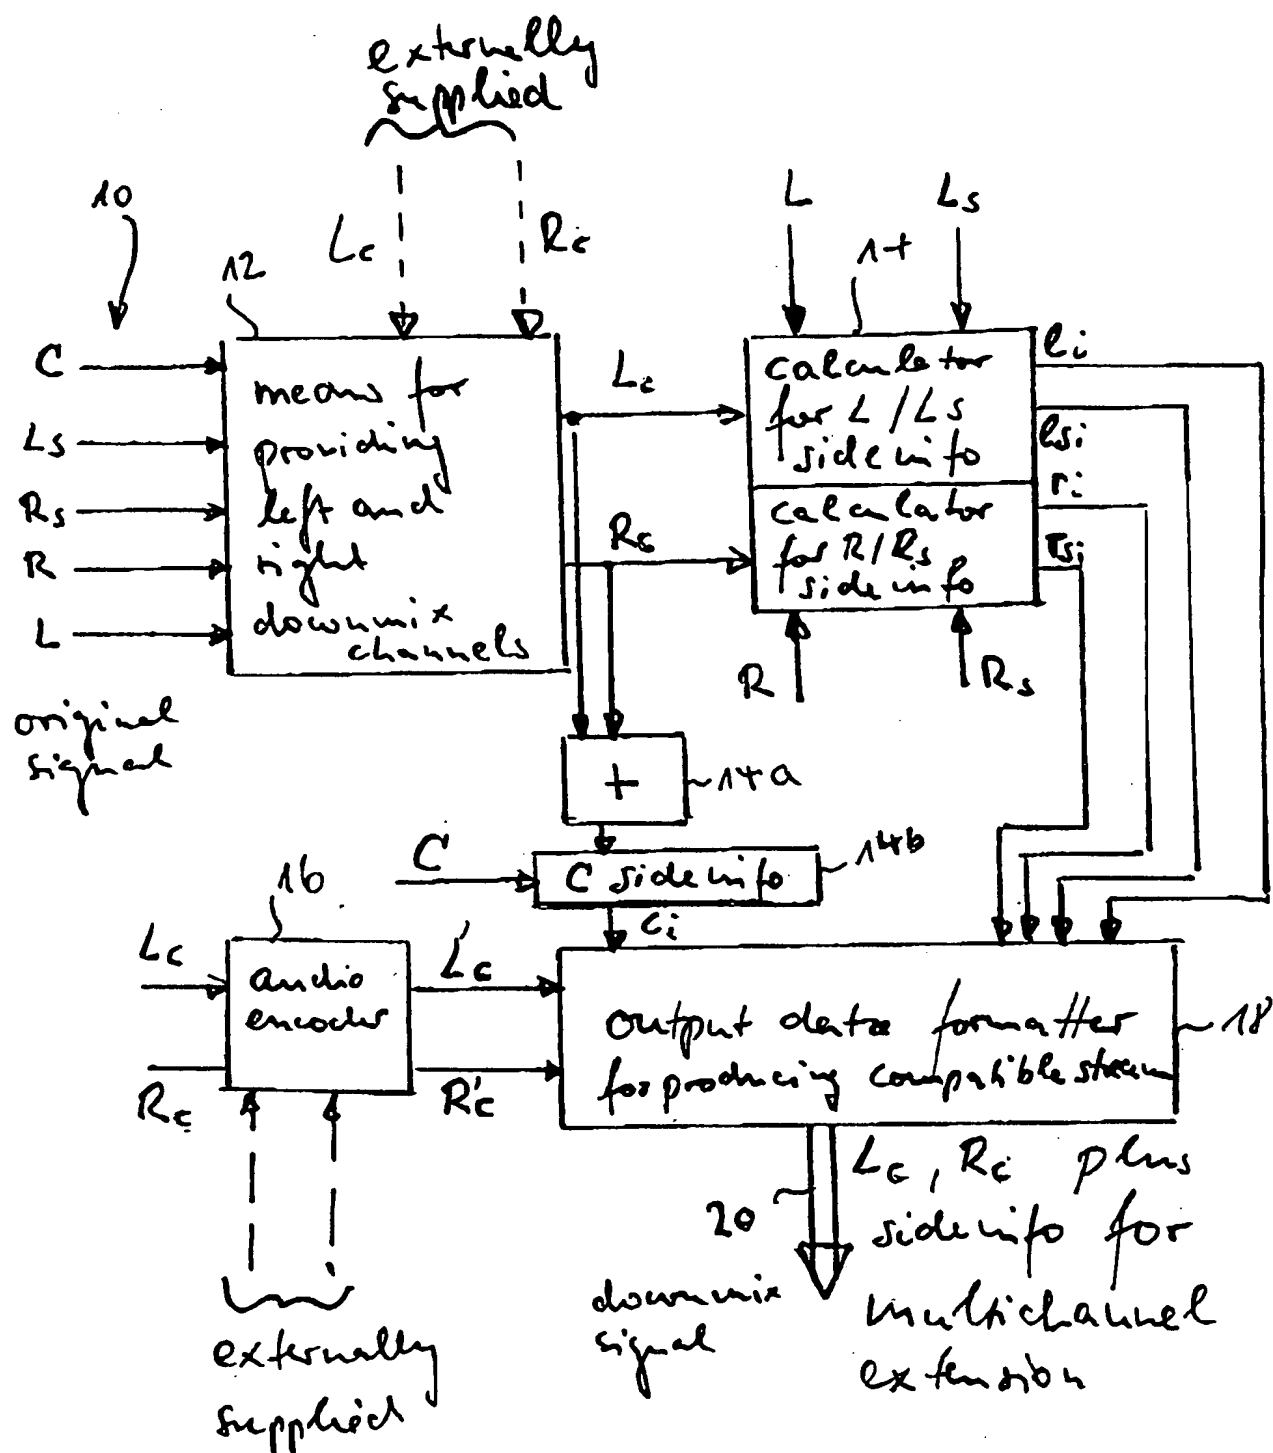 externally
supplied
10
Lc
Rc
12
L
Ls
14
C
Ls
Rs
R
L
means for
providing
left and
right
downmix
channels
Lc
Rc
calculator
for L/Ls
sideinfo
calculator
for R/Rs
sideinfo
li
lsi
ri
rsi
R
Rs
original
signal
+
14a
C
C sideinfo
14b
ci
16
Lc
Rc
audio
encoder
L'c
R'c
output data formatter
for producing compatible stream
18
20
downmix
signal
Lc, Rc plus
sideinfo for
multichannel
extension
externally
supplied